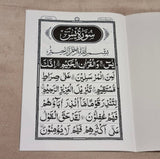 سورة يس
بسم الله الرحمن الرحيم
يس والقرآن الحكيم إنك
لمن المرسلين على صراط
مستقيم تنزيل العزيز الرحيم
لتنذر قوما ما أنذر آباؤهم
فهم غافلون لقد حق القول
على أكثرهم فهم لا يؤمنون